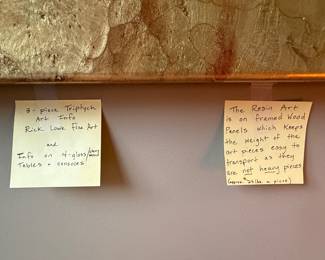 3-piece Triptych
Art Info
Rick Lowe Fine Art
and
Info on 4-glass/
Tables + consoles
The Resin Art
is on framed Wood
Panels which keeps
the weight of the
art pieces easy to
transport as they
are not heavy pieces
(approx. 25 lbs. a piece)